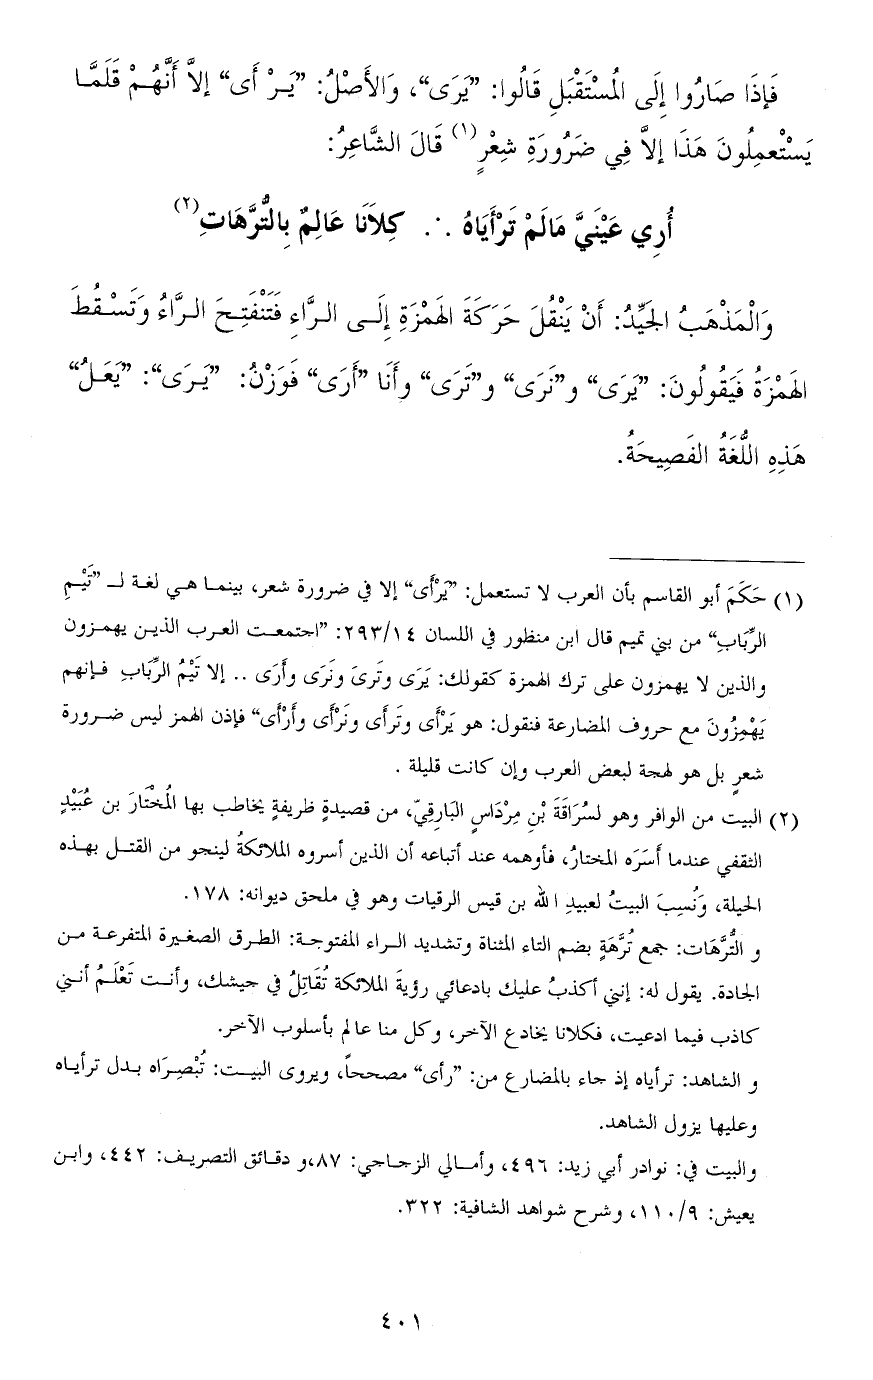 فَإِذَا صَارُوا إِلَى المُسْتَقْبَلِ قَالُوا: ”يَرَى“، وَالأَصْلُ: ”يَـرْ أَى“ إلاَّ أَنَّهُـمْ قَلَمَّـا
يَسْتَعمِلُونَ هَذَا إلاَّ فِي ضَرُورَةِ شِعْرٍ(١) قَالَ الشَّاعِرُ:
أُرِي عَيْنَيَّ مَالَمْ تَرْأَيَاهُ ∴ كِلاَنَا عَالِمٌ بِالتُّرَّهَاتِ(٢)
وَالْمَذْهَبُ الجَيِّدُ: أَنْ يَنْقُلَ حَرَكَةَ الهَمْزَةِ إِلَـى الـرَّاءِ فَتَنْفَتِـحَ الـرَّاءُ وَتَسْـقُطَ
الهَمْزَةُ فَيَقُولُونَ: ”يَرَى“ و”نَرَى“ و”تَرَى“ وأَنَا ”أَرَى“ فَوَزْنُ: ”يَـرَى“: ”يَفَـلُ“
هَذِهِ اللُّغَةُ الفَصِيحَةُ.
(١) حَكَمَ أبو القاسم بأن العرب لا تستعمل: ”يَرْأَى“ إلا في ضرورة شعر، بينمـا هـي لغـة لـ ”تَيْـمِ
الرِّبَابِ“ من بني تميم قال ابن منظور في اللسان ٢٩٣/١٤: ”اجتمعـت العـرب الذيـن يهمـزون
والذين لا يهمزون على ترك الهمزة كقولك: يَرَى وتَرىَ ونَرَى وأَرَى .. إلا تَيْمُ الرِّبَابِ فـإنهم
يَهْمِزُونَ مع حروف المضارعة فنقول: هو يَرْأَى وتَرأَى ونَرْأَى وأَرْأَى“ فإذن الهمز ليس ضـرورة
شعرٍ بل هو لهجة لبعض العرب وإن كانت قليلة .
(٢) البيت من الوافر وهو لسُرَاقَةَ بْنِ مِرْدَاسٍ البَارِقيِّ، من قصيدةٍ ظريفةٍ يخاطب بها المُخْتَارَ بن عُبَيْدٍ
الثقفي عندما أَسَرَه المختارُ، فأوهمه عند أتباعه أن الذين أسروه الملائكةُ لينجو من القتـل بهـذه
الحيلة، ونُسِبَ البيتُ لعبيدِ الله بن قيس الرقيات وهو في ملحق ديوانه: ١٧٨.
و التُّرَّهَات: جمع تُرَّهَةٍ بضم التاء المثناة وتشديد الـراء المفتوحـة: الطـرق الصغيرة المتفرعـة مـن
الجادة. يقول له: إنني أكذبُ عليك بادعائي رؤيةَ الملائكة تُقَاتِلُ في جيشك، وأنـت تَعْلَـمُ أنـني
كاذب فيما ادعيت، فكلانا يخادع الآخر، وكل منا عالم بأسلوب الآخر.
و الشاهد: ترأياه إذ جاء بالمضارع من: ”رأى“ مصححاً، ويروى البيـت: تُبْصِرَاه بـدل ترأيـاه
وعليها يزول الشاهد.
والبيت في: نوادر أبي زيد: ٤٩٦، وأمـالي الزجـاجي: ٨٧،و دقـائق التصريـف: ٤٤٢، وابـن
يعيش: ١١٠/٩، وشرح شواهد الشافية: ٣٢٢.
٤٠١